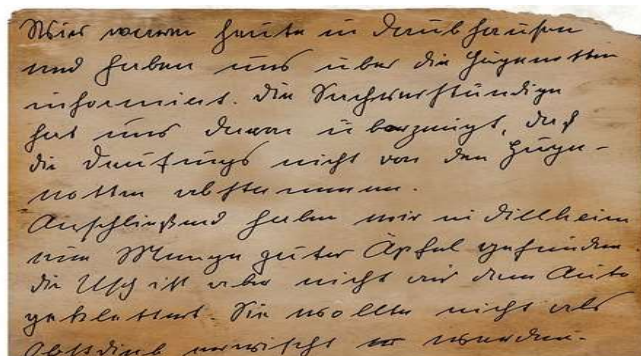 Wir waren heute in Daubhausen
und haben uns über die Hugenotten
informiert. Die Sachverständige
hat uns davon überzeugt, daß
die nicht von den Huge-
notten abstammen.
Anschließend haben wir in Dillheim
eine Menge guter Äpfel gefunden
die Usch ist aber nicht auf dem Auto
geklettert. Sie wollte nicht als
Obstdieb erwischt werden.